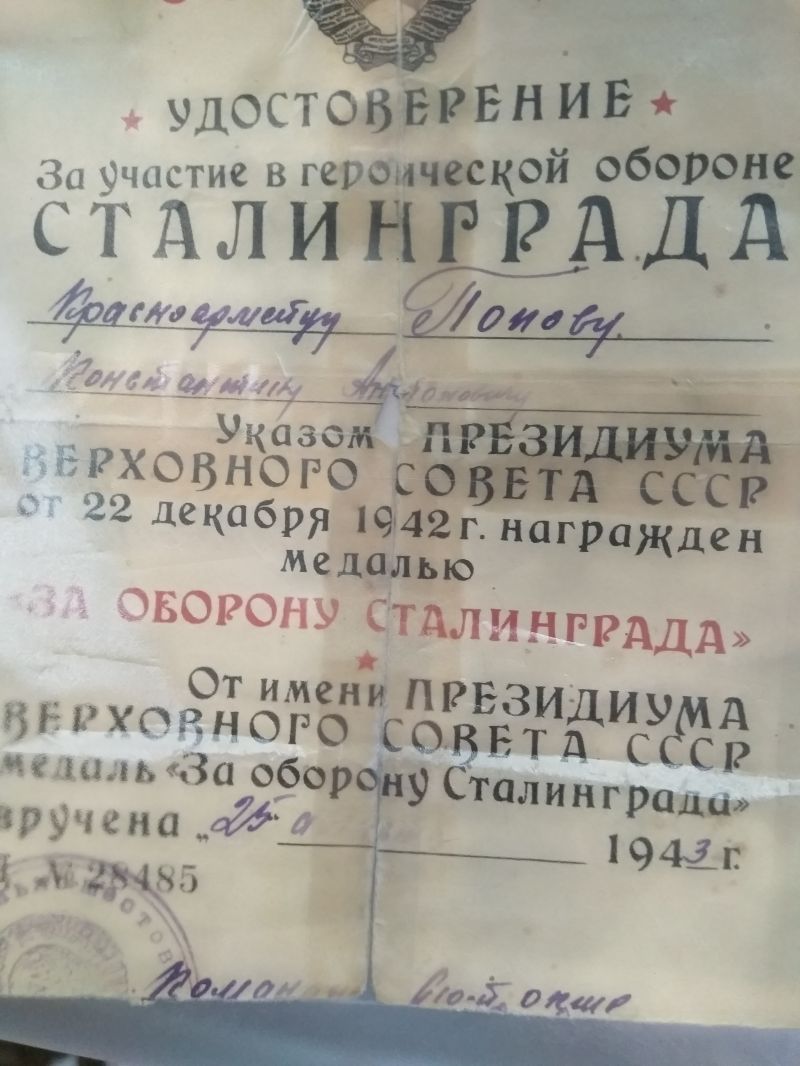 УДОСТОВЕРЕНИЕ
За участие в героической обороне
СТАЛИНГРАДА
Красноармейцу Попову
Константину Антоновичу
Указом ПРЕЗИДИУМА
ВЕРХОВНОГО СОВЕТА СССР
от 22 декабря 1942 г. награжден
медалью
«ЗА ОБОРОНУ СТАЛИНГРАДА»
От имени ПРЕЗИДИУМА
ВЕРХОВНОГО СОВЕТА СССР
медаль «За оборону Сталинграда»
вручена „25.
1943 г.
№ 28485